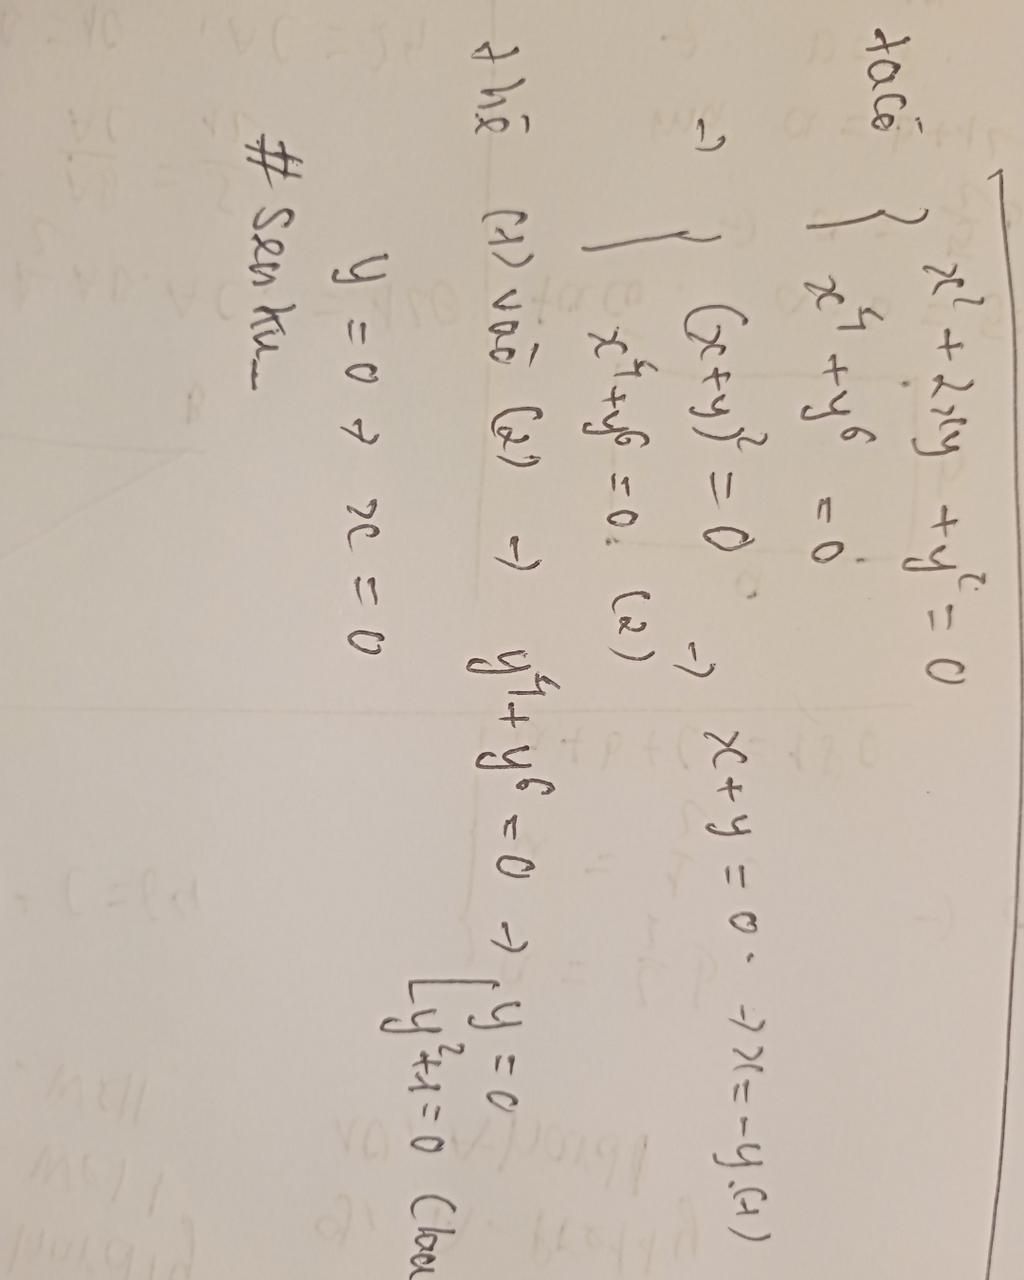 ta có { x² + 2xy + y² = 0
x⁴ + y⁶ = 0
→ { (x+y)² = 0 → x + y = 0. → x = -y (1)
x⁴ + y⁶ = 0. (2)
thế (1) vào (2) → y⁴ + y⁶ = 0 → [ y = 0
y² + 1 = 0 (loại
y = 0 → x = 0
# Senku_